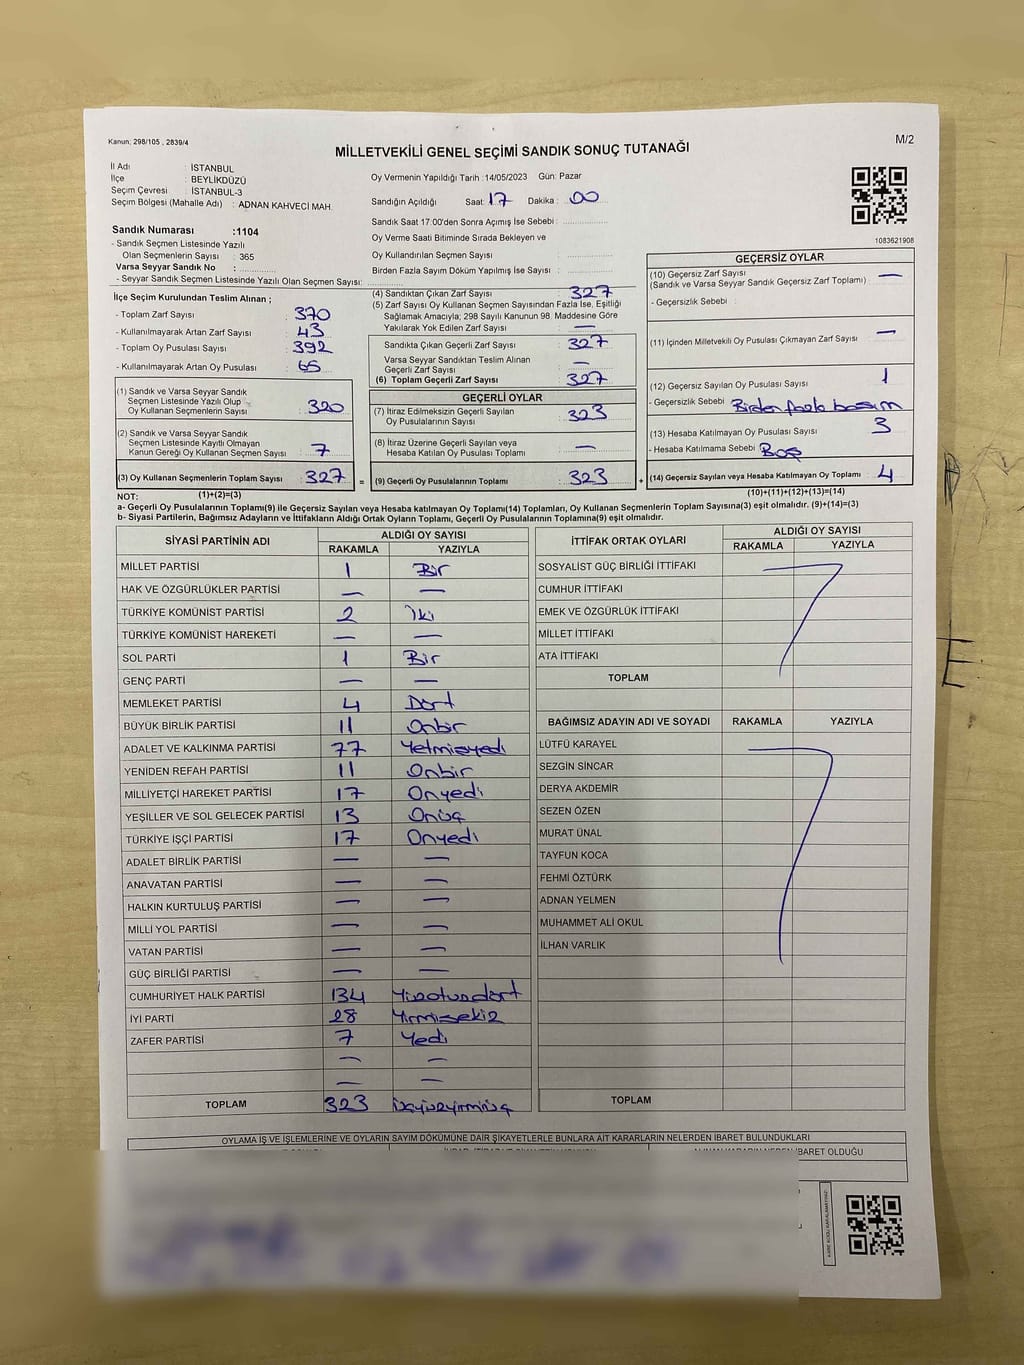 Kanun; 298/105 , 2839/4
M/2
MİLLETVEKİLİ GENEL SEÇİMİ SANDIK SONUÇ TUTANAĞI
İl Adı : İSTANBUL
İlçe : BEYLİKDÜZÜ
Seçim Çevresi : İSTANBUL-3
Seçim Bölgesi (Mahalle Adı) : ADNAN KAHVECİ MAH.
Oy Vermenin Yapıldığı Tarih :14/05/2023 Gün: Pazar
Sandığın Açıldığı Saat: 17 Dakika: 00
Sandık Saat 17:00'den Sonra Açımış İse Sebebi :
Oy Verme Saati Bitiminde Sırada Bekleyen ve
Oy Kullandırılan Seçmen Sayısı :
Birden Fazla Sayım Döküm Yapılmış İse Sayısı :
1083621908
Sandık Numarası :1104
- Sandık Seçmen Listesinde Yazılı
Olan Seçmenlerin Sayısı : 365
Varsa Seyyar Sandık No :
- Seyyar Sandık Seçmen Listesinde Yazılı Olan Seçmen Sayısı:
İlçe Seçim Kurulundan Teslim Alınan ;
- Toplam Zarf Sayısı : 370
- Kullanılmayarak Artan Zarf Sayısı : 43
- Toplam Oy Pusulası Sayısı : 392
- Kullanılmayarak Artan Oy Pusulası : 65
(1) Sandık ve Varsa Seyyar Sandık
Seçmen Listesinde Yazılı Olup
Oy Kullanan Seçmenlerin Sayısı : 320
(2) Sandık ve Varsa Seyyar Sandık
Seçmen Listesinde Kayıtlı Olmayan
Kanun Gereği Oy Kullanan Seçmen Sayısı : 7
(3) Oy Kullanan Seçmenlerin Toplam Sayısı : 327
(4) Sandıktan Çıkan Zarf Sayısı : 327
(5) Zarf Sayısı Oy Kullanan Seçmen Sayısından Fazla İse, Eşitliği
Sağlamak Amacıyla; 298 Sayılı Kanunun 98. Maddesine Göre
Yakılarak Yok Edilen Zarf Sayısı : —
Sandıkta Çıkan Geçerli Zarf Sayısı : 327
Varsa Seyyar Sandıktan Teslim Alınan
Geçerli Zarf Sayısı : —
(6) Toplam Geçerli Zarf Sayısı : 327
GEÇERLİ OYLAR
(7) İtiraz Edilmeksizin Geçerli Sayılan
Oy Pusulalarının Sayısı : 323
(8) İtiraz Üzerine Geçerli Sayılan veya
Hesaba Katılan Oy Pusulası Toplamı : —
= (9) Geçerli Oy Pusulalarının Toplamı : 323 +
GEÇERSİZ OYLAR
(10) Geçersiz Zarf Sayısı : —
(Sandık ve Varsa Seyyar Sandık Geçersiz Zarf Toplamı)
- Geçersizlik Sebebi :
(11) İçinden Milletvekili Oy Pusulası Çıkmayan Zarf Sayısı : —
(12) Geçersiz Sayılan Oy Pusulası Sayısı : 1
- Geçersizlik Sebebi : Birden fazla basım
(13) Hesaba Katılmayan Oy Pusulası Sayısı : 3
- Hesaba Katılmama Sebebi : Boş
(14) Geçersiz Sayılan veya Hesaba Katılmayan Oy Toplamı : 4
NOT: (1)+(2)=(3)
(10)+(11)+(12)+(13)=(14)
a- Geçerli Oy Pusulasının Toplamı(9) ile Geçersiz Sayılan veya Hesaba katılmayan Oy Toplamı(14) Toplamları, Oy Kullanan Seçmenlerin Toplam Sayısına(3) eşit olmalıdır. (9)+(14)=(3)
b- Siyasi Partilerin, Bağımsız Adayların ve İttifakların Aldığı Ortak Oyların Toplamı, Geçerli Oy Pusulalarının Toplamına(9) eşit olmalıdır.
SİYASİ PARTİNİN ADI ALDIĞI OY SAYISI
RAKAMLA YAZIYLA
MİLLET PARTİSİ 1 Bir
HAK VE ÖZGÜRLÜKLER PARTİSİ — —
TÜRKİYE KOMÜNİST PARTİSİ 2 İki
TÜRKİYE KOMÜNİST HAREKETİ — —
SOL PARTİ 1 Bir
GENÇ PARTİ — —
MEMLEKET PARTİSİ 4 Dört
BÜYÜK BİRLİK PARTİSİ 11 Onbir
ADALET VE KALKINMA PARTİSİ 77 Yetmişyedi
YENİDEN REFAH PARTİSİ 11 Onbir
MİLLİYETÇİ HAREKET PARTİSİ 17 Onyedi
YEŞİLLER VE SOL GELECEK PARTİSİ 13 Onüç
TÜRKİYE İŞÇİ PARTİSİ 17 Onyedi
ADALET BİRLİK PARTİSİ — —
ANAVATAN PARTİSİ — —
HALKIN KURTULUŞ PARTİSİ — —
MİLLİ YOL PARTİSİ — —
VATAN PARTİSİ — —
GÜÇ BİRLİĞİ PARTİSİ — —
CUMHURİYET HALK PARTİSİ 134 Yüzotuzdört
İYİ PARTİ 28 Yirmisekiz
ZAFER PARTİSİ 7 Yedi
— —
— —
TOPLAM 323 üçyüzyirmiüç
İTTİFAK ORTAK OYLARI ALDIĞI OY SAYISI
RAKAMLA YAZIYLA
SOSYALİST GÜÇ BİRLİĞİ İTTİFAKI
CUMHUR İTTİFAKI
EMEK VE ÖZGÜRLÜK İTTİFAKI
MİLLET İTTİFAKI
ATA İTTİFAKI
TOPLAM
BAĞIMSIZ ADAYIN ADI VE SOYADI RAKAMLA YAZIYLA
LÜTFÜ KARAYEL
SEZGİN SİNCAR
DERYA AKDEMİR
SEZEN ÖZEN
MURAT ÜNAL
TAYFUN KOCA
FEHMİ ÖZTÜRK
ADNAN YELMEN
MUHAMMET ALİ OKUL
İLHAN VARLIK
TOPLAM
OYLAMA İŞ VE İŞLEMLERİNE VE OYLARIN SAYIM DÖKÜMÜNE DAİR ŞİKAYETLERLE BUNLARA AİT KARARLARIN NELERDEN İBARET BULUNDUKLARI
İBARET OLDUĞU